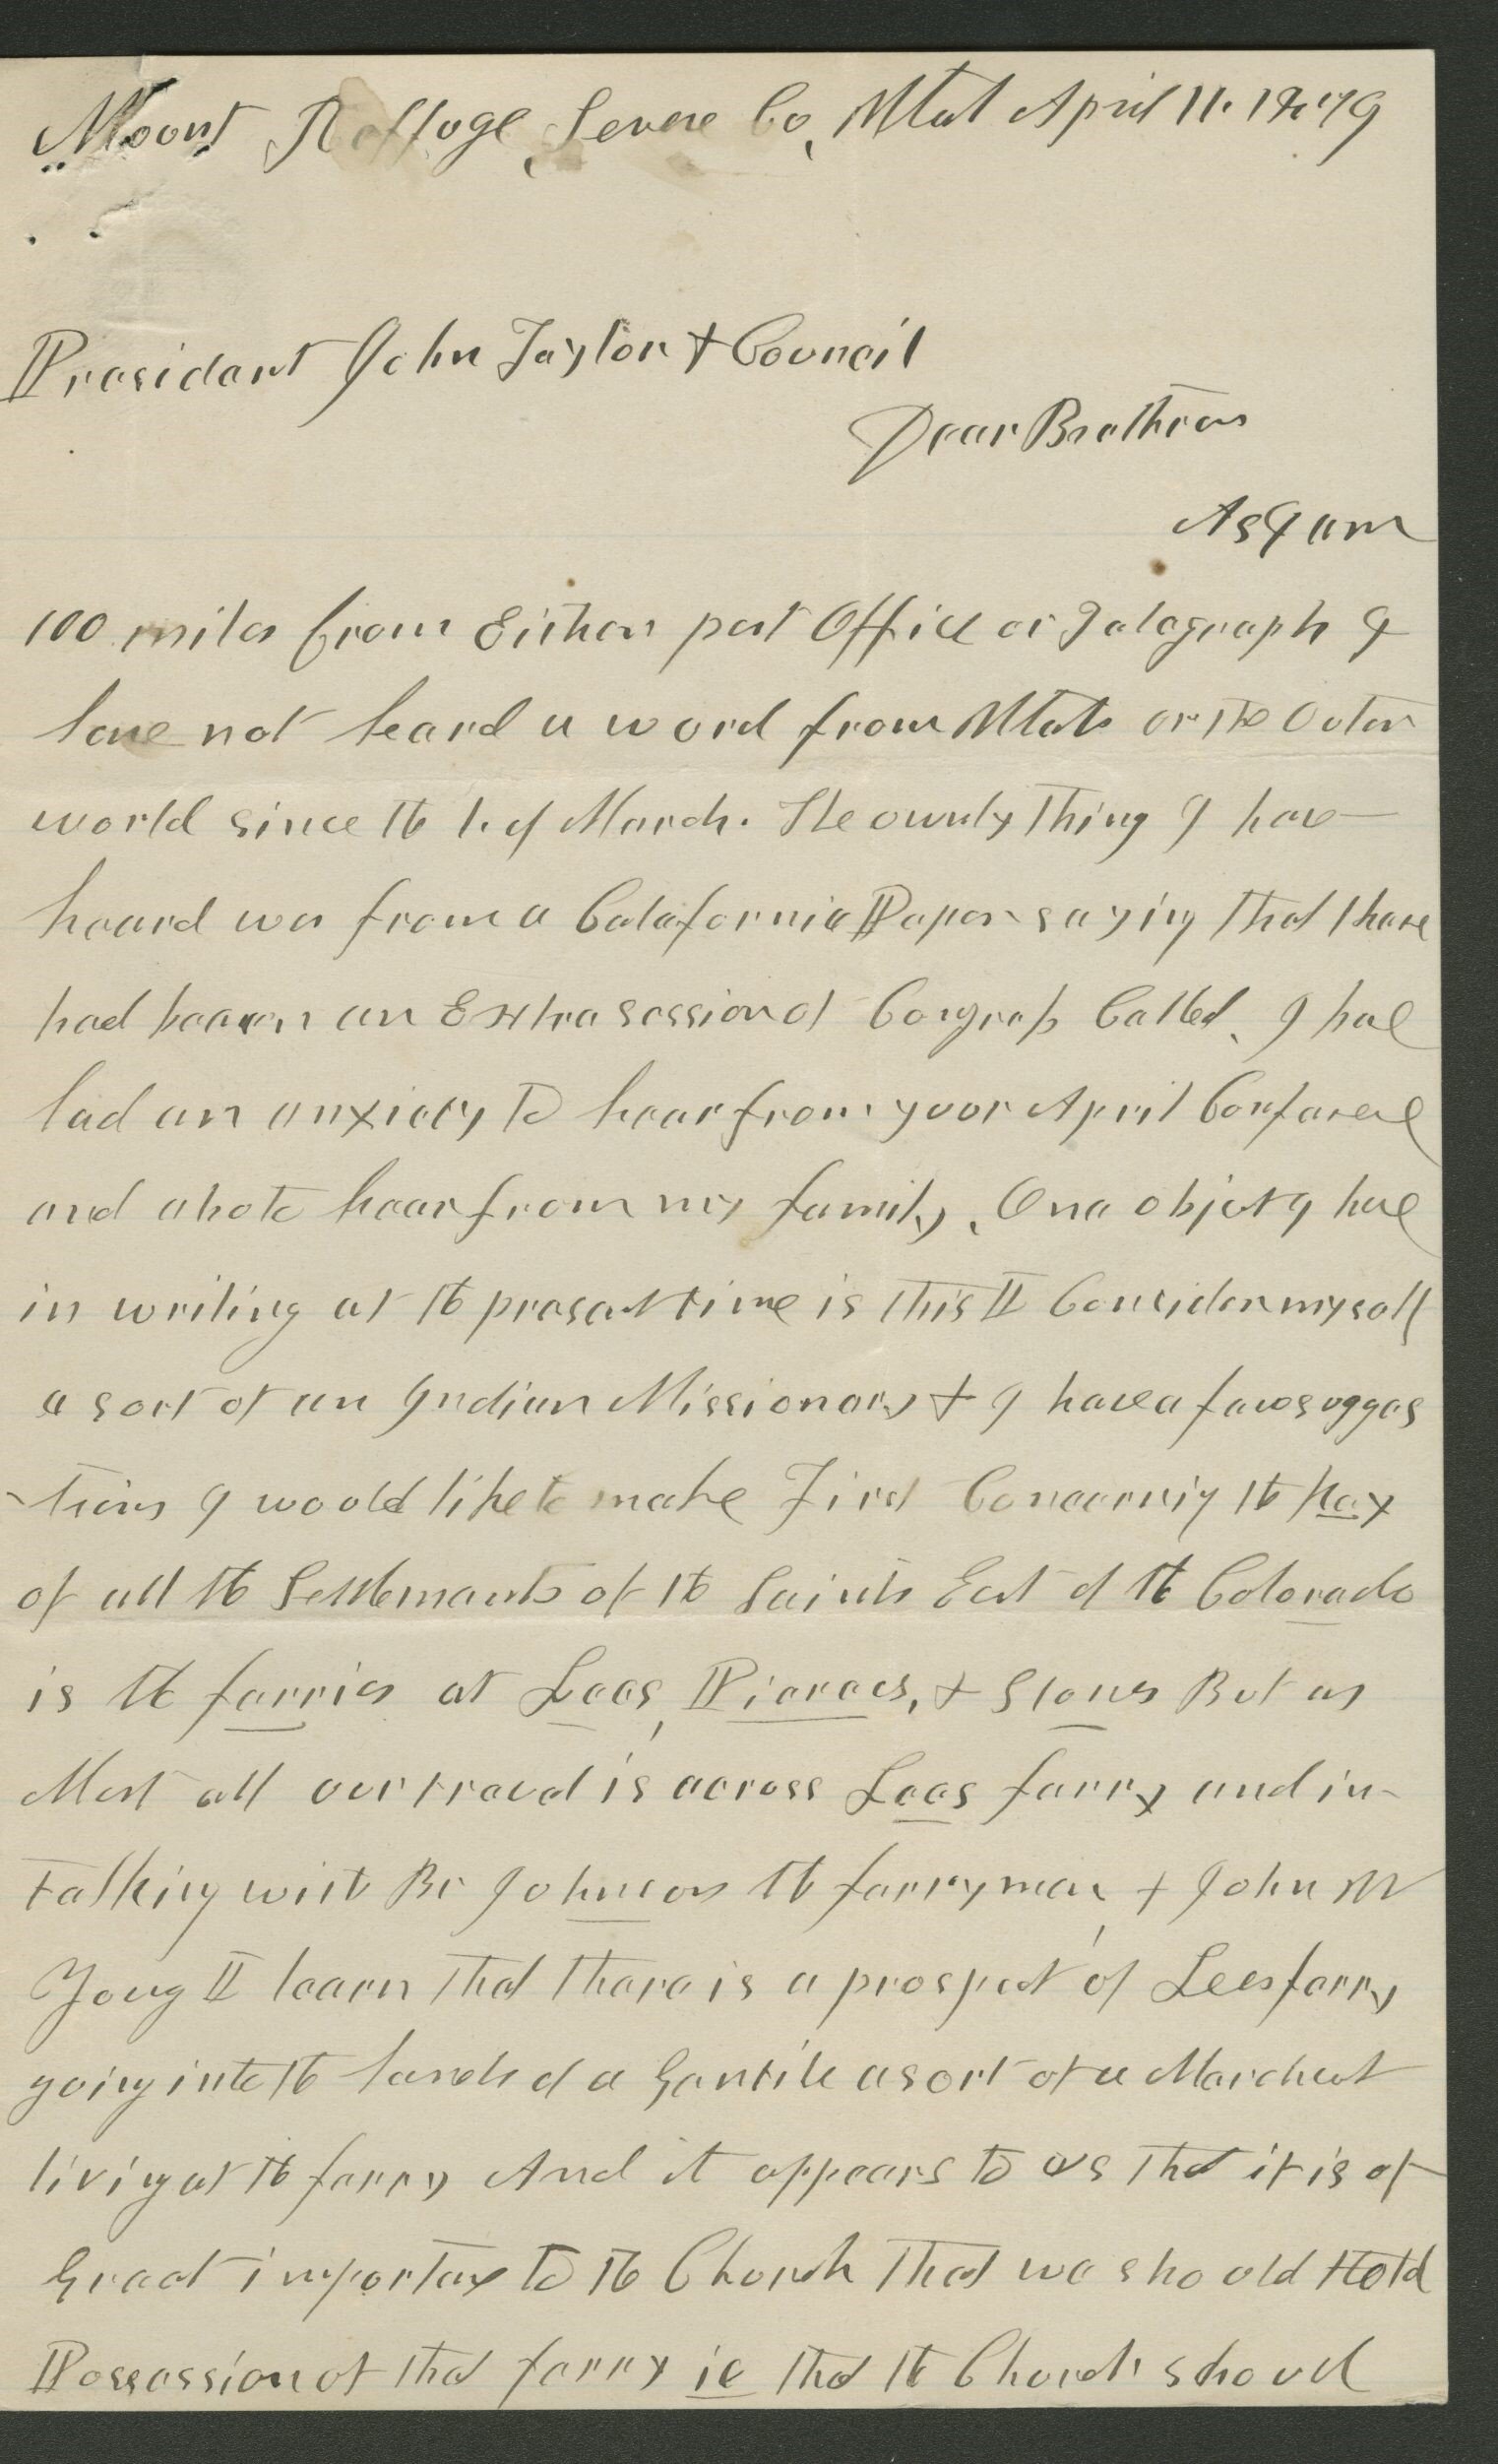 Mount Reffuge, Severe Co, Utah April 11. 1879
Presidant John Taylor & Council
Dear Brethren
As I am
100 miles from Either post Office or Telegraph I
have not heard a word from Utah or the outer
world since the 1. of March. The ownly thing I have
heard was from a Calafornia Paper saying that thare
had beaen an Extra session of Congress Called, I have
had an anxiety to hear from your April Conference
and also to hear from my family, One object I have
in writing at the present time is this I Consider myself
a sort of an Indian Missionary & I have a few sugges
-tions I would like to make First Concerning the key
of all the Settlements of the Saints East of the Colorado
is the farries at Lees, Pierces, & Stones But as
Most all our travel is across Lees farry and in
talking with Br Johnson the farryman, & John W
Young I learn that thare is a prospect of Lees farry
going into the hands of a Gentile a sort of a Marchant
living at the farry And it appears to us that it is of
Great importance to the Church that we should Hold
Possession of that farry ie that the Church should